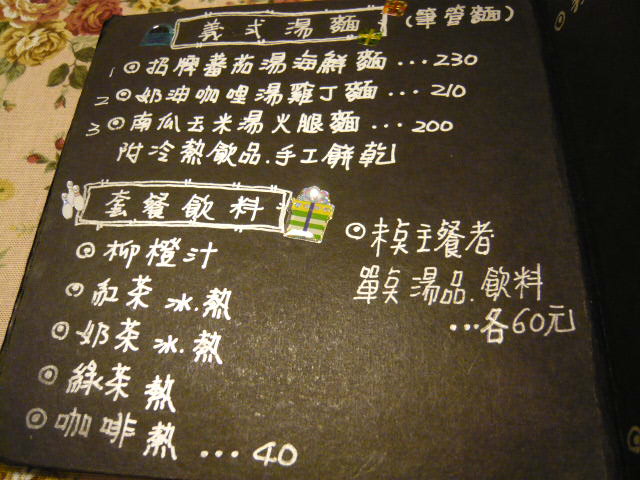 義式湯麵 (筆管麵)
1 ⊙招牌蕃茄湯海鮮麵...230
2 ⊙奶油咖哩湯雞丁麵...210
3 ⊙南瓜玉米湯火腿麵...200
附冷熱飲品.手工餅乾
套餐飲料
⊙柳橙汁
⊙紅茶 冰.熱
⊙奶茶 冰.熱
⊙綠茶 熱
⊙咖啡 熱 ...40
⊙未点主餐者
單点湯品.飲料
...各60元